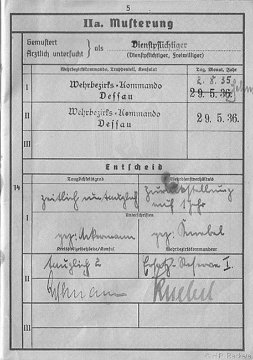 5
IIa. Musterung
Gemustert
Ärztlich untersucht
als Dienstpflichtiger
(Dienstpflichtiger, Freiwilliger)
Wehrbezirkskommando, Truppenteil, Konsulat
Tag, Monat, Jahr
I
Wehrbezirks-Kommando
Dessau
2. 8. 35
29. 5. 36.
II
Wehrbezirks-Kommando
Dessau
29. 5. 36.
III
Entscheid
14
Tauglichkeitsgrad
Wehrdienstverhältnis
I
zeitlich untauglich
Zurückstellung
auf 1 Jahr
Unterschriften
gez. Ackermann
gez. Knebel
Wehrbezirkskommandeur
II
tauglich 2
Ersatz-Reserve I.
Knebel
III